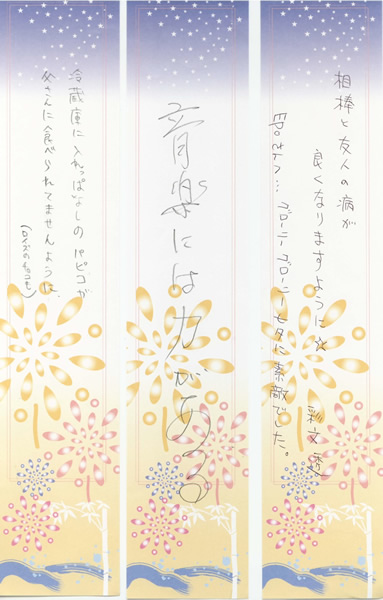 相棒と友人の病が
良くなりますように☆
彩文透
ゴローニーゴローニー七夕に素敵でした。
音楽には力がある
冷蔵庫に入れっぱなしのパピコが
父さんに食べられてませんように。
(ロイズのチョコも)